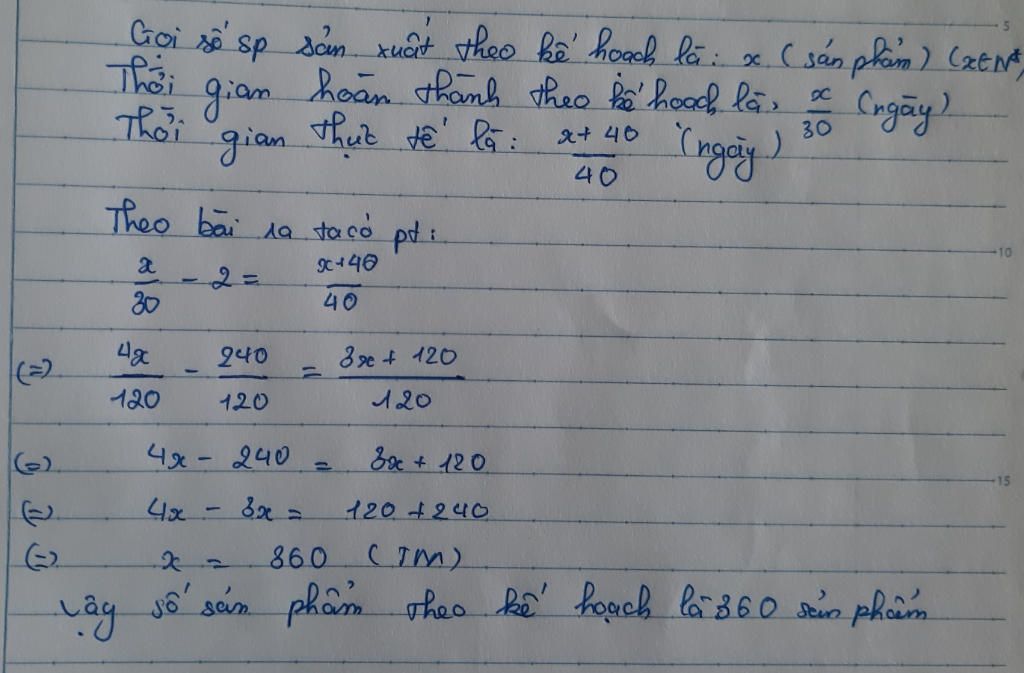 Gọi số sp sản xuất theo kế hoạch là: x (sản phẩm) (x∈N*)
Thời gian hoàn thành theo kế hoạch là: x/30 (ngày)
Thời gian thực tế là: (x + 40)/40 (ngày)
Theo bài ra ta có pt:
x/30 - 2 = (x+40)/40
(=) 4x/120 - 240/120 = (3x + 120)/120
(=) 4x - 240 = 3x + 120
(=) 4x - 3x = 120 + 240
(=) x = 360 (TM)
Vậy số sản phẩm theo kế hoạch là 360 sản phẩm
5
10
15